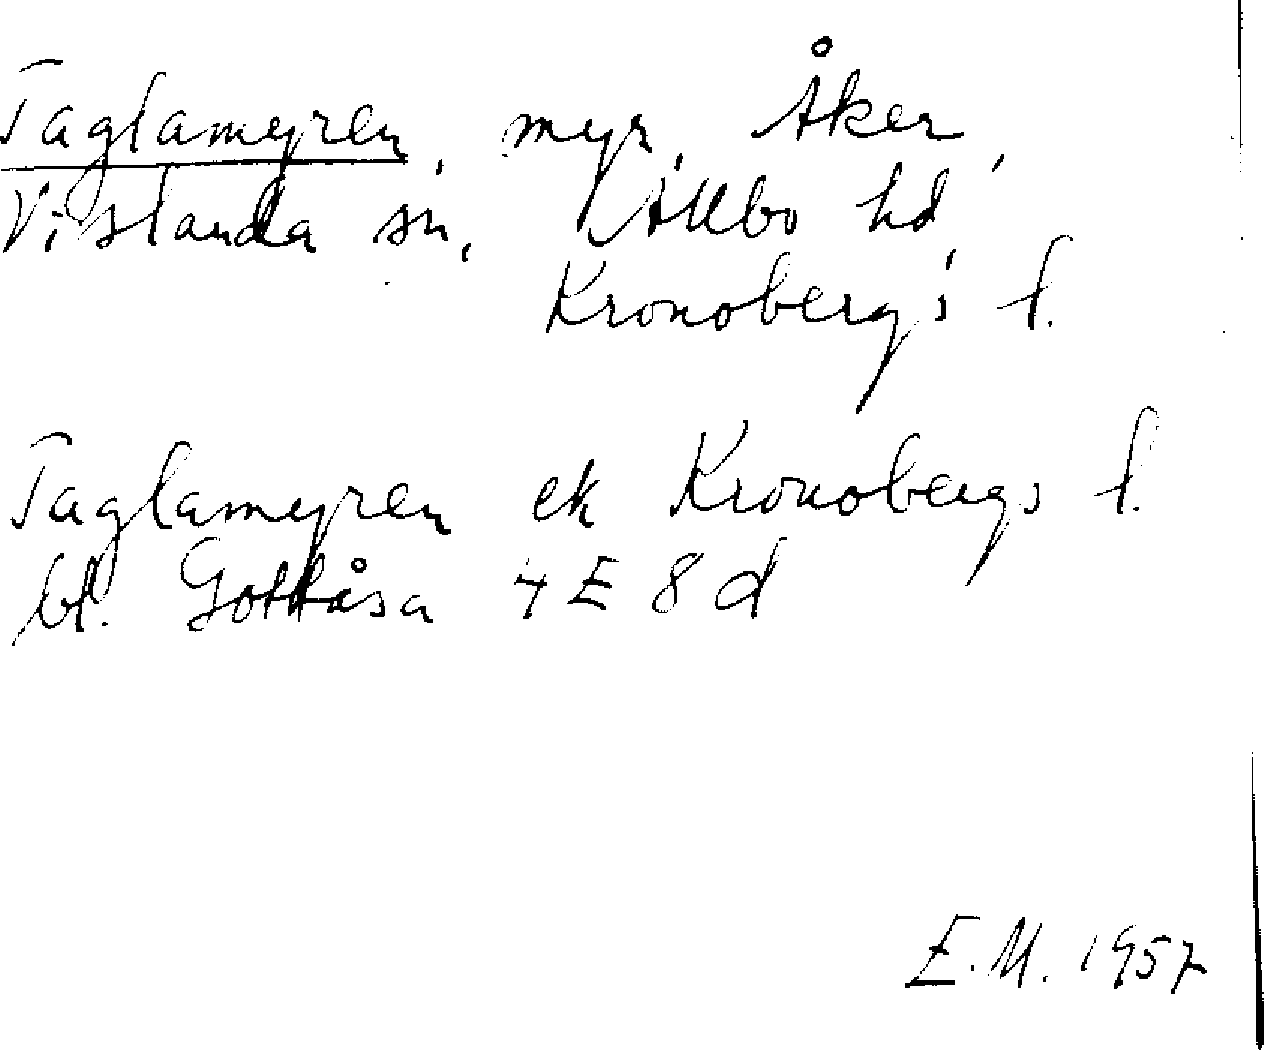 Taglamyren, myr, Åker,
Vislanda sn, Allbo hd,
Kronobergs l.
Taglamyren ek Kronobergs l.
bl. Gottåsa 4 E 8 d
E.M. 1957